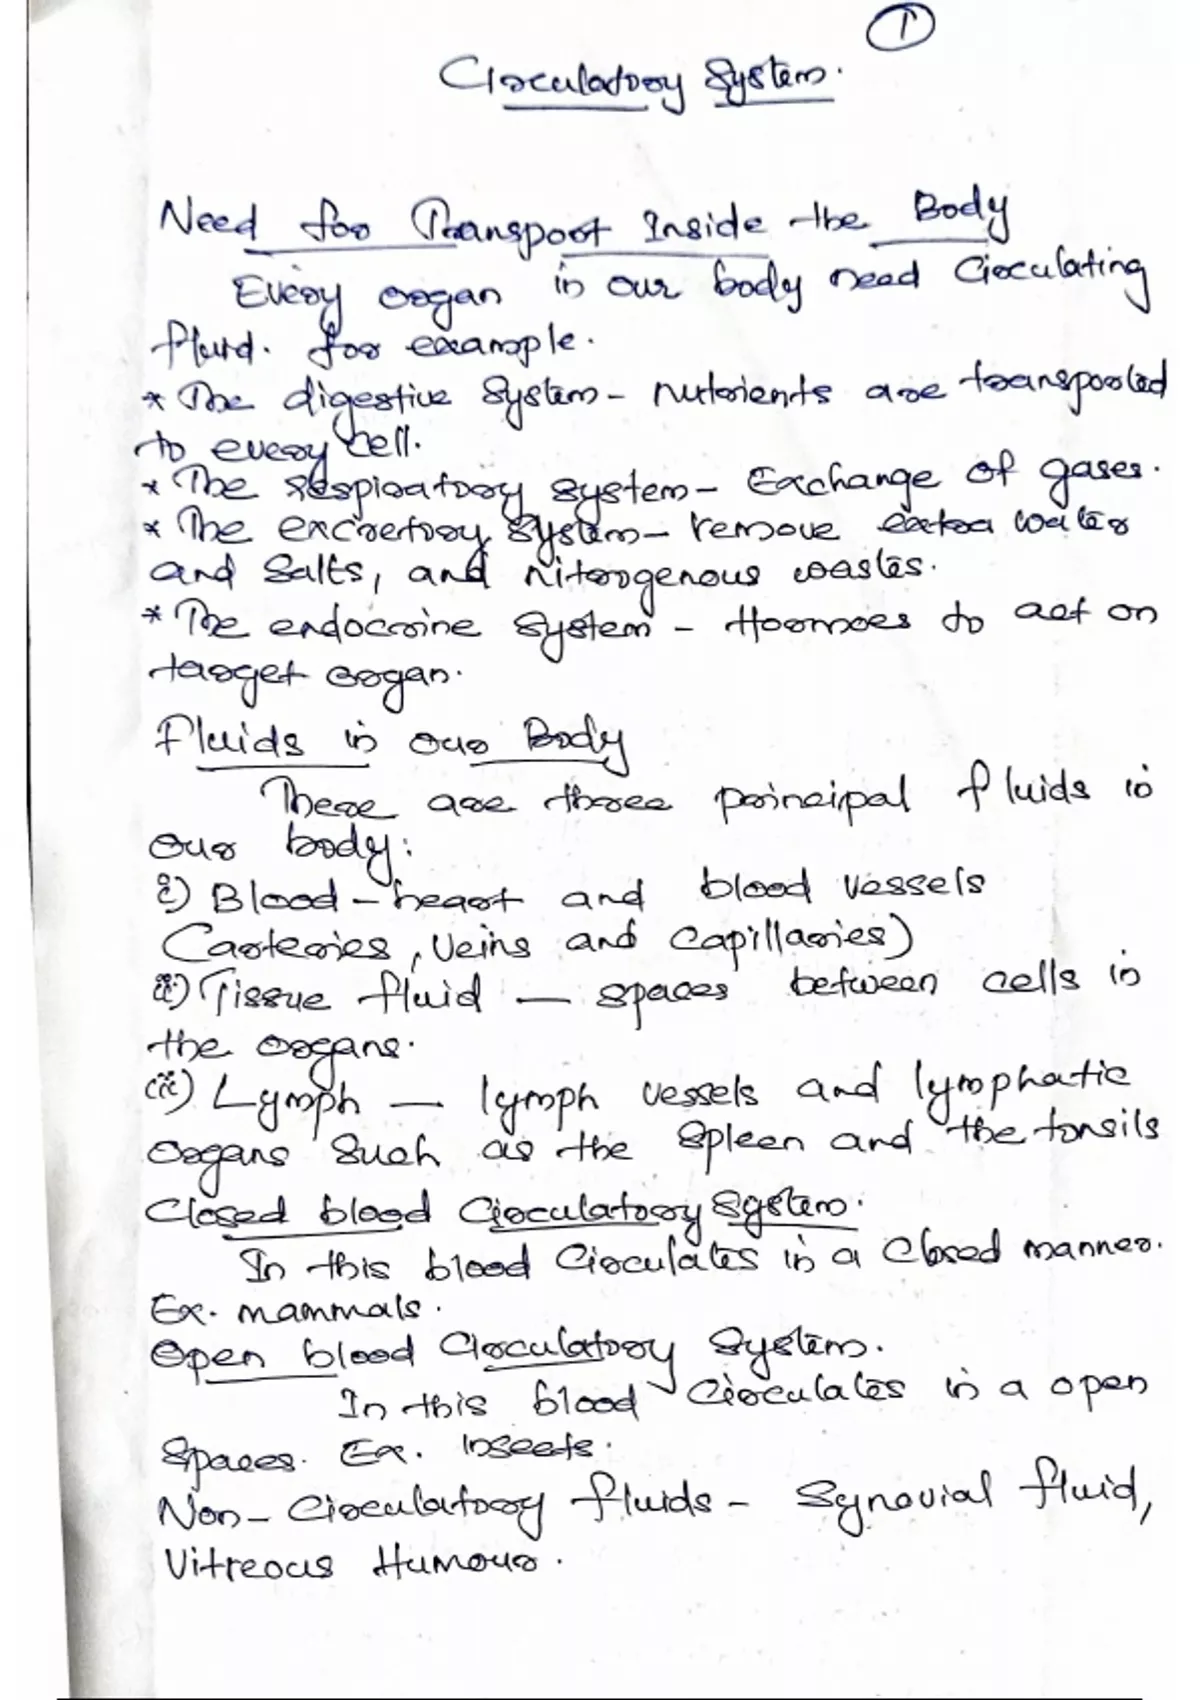 1
Circulatory System.
Need for Transport Inside the Body
Every organ in our body need Circulating
fluid. for example.
* The digestive System - nutrients are transported
to every cell.
* The respiratory system - Exchange of gases.
* The excretory system - remove extra water
and Salts, and nitrogenous wastes.
* The endocrine system - Hormoes to act on
target organ.
Fluids in our Body
There are three principal fluids in
our body:
i) Blood - heart and blood vessels
(arteries, veins and capillaries)
ii) Tissue fluid - spaces between cells in
the organs.
iii) Lymph - lymph vessels and lymphatic
organs such as the spleen and the tonsils
Closed blood Circulatory System.
In this blood Circulates in a Closed manner.
Ex. mammals.
Open blood Circulatory System.
In this blood Circulates in a open
Spaces. Ex. Insects.
Non-Circulatory fluids - Synovial fluid,
Vitreous Humour.